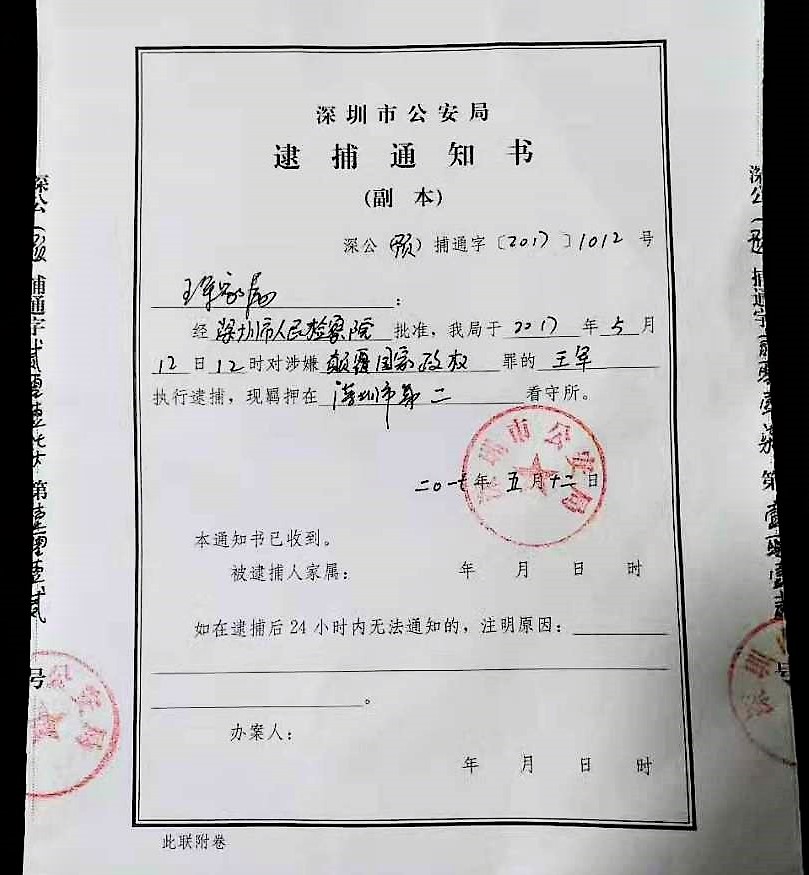 深圳市公安局
逮捕通知书
(副 本)
深公(预)捕通字〔2017〕1012号
王军家属:
经深圳市人民检察院批准，我局于2017年5月
12日12时对涉嫌颠覆国家政权罪的王军
执行逮捕，现羁押在深圳市第二看守所。
深圳市公安局
二〇一七年五月十二日
本通知书已收到。
被逮捕人家属: 年 月 日 时
如在逮捕后24小时内无法通知的，注明原因:
。
办案人:
年 月 日 时
此联附卷